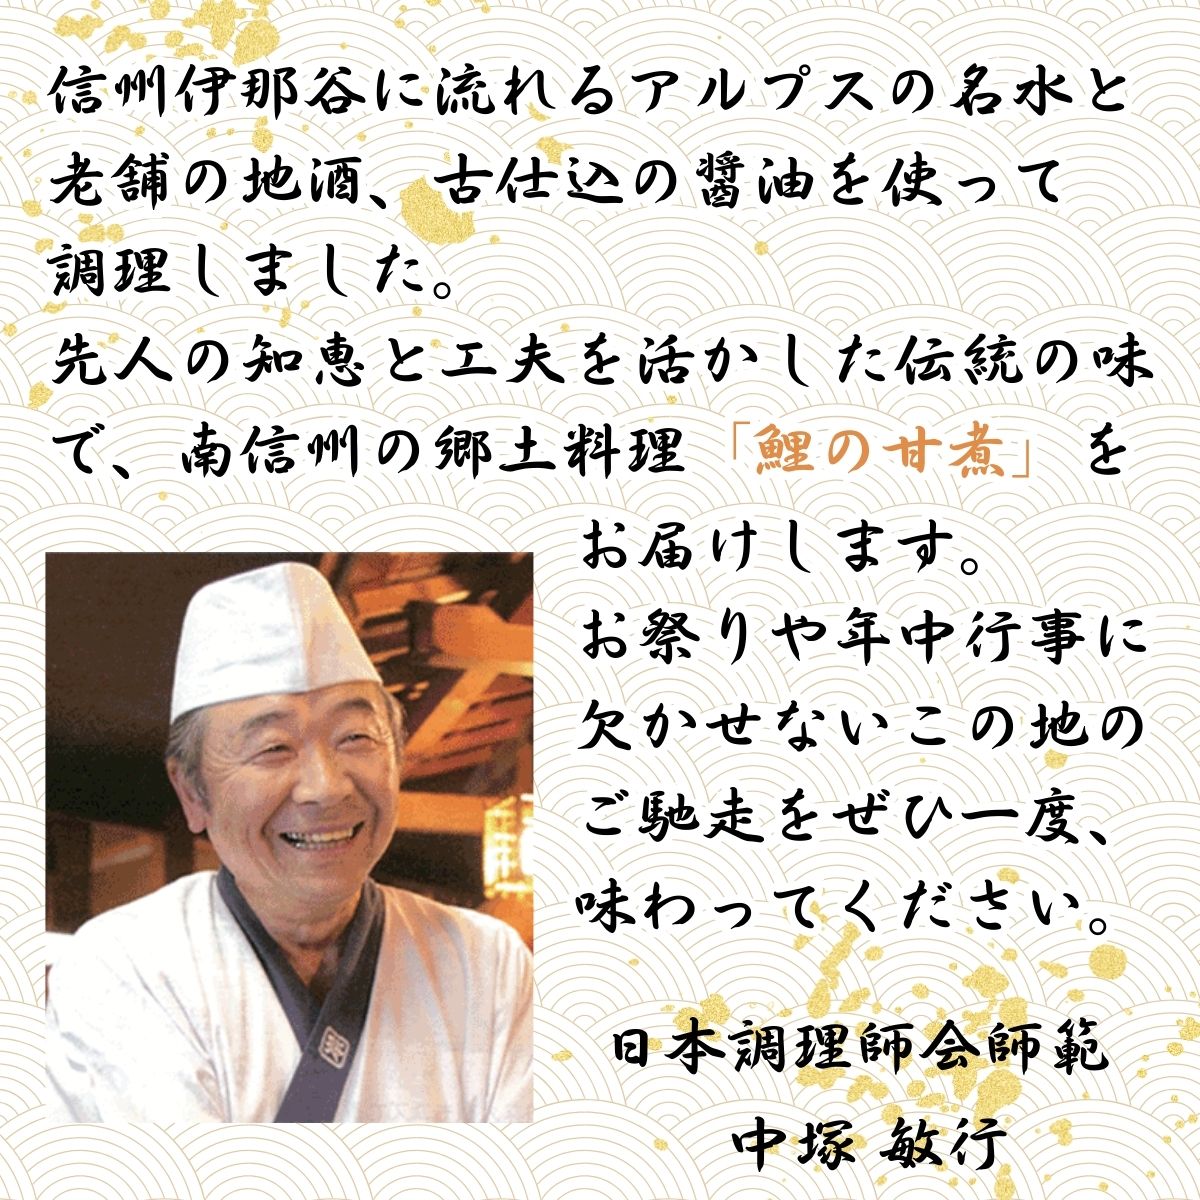 信州伊那谷に流れるアルプスの名水と
老舗の地酒、古仕込の醤油を使って
調理しました。
先人の知恵と工夫を活かした伝統の味
で、南信州の郷土料理「鯉の甘煮」を
お届けします。
お祭りや年中行事に
欠かせないこの地の
ご馳走をぜひ一度、
味わってください。
日本調理師会師範
中塚 敏行